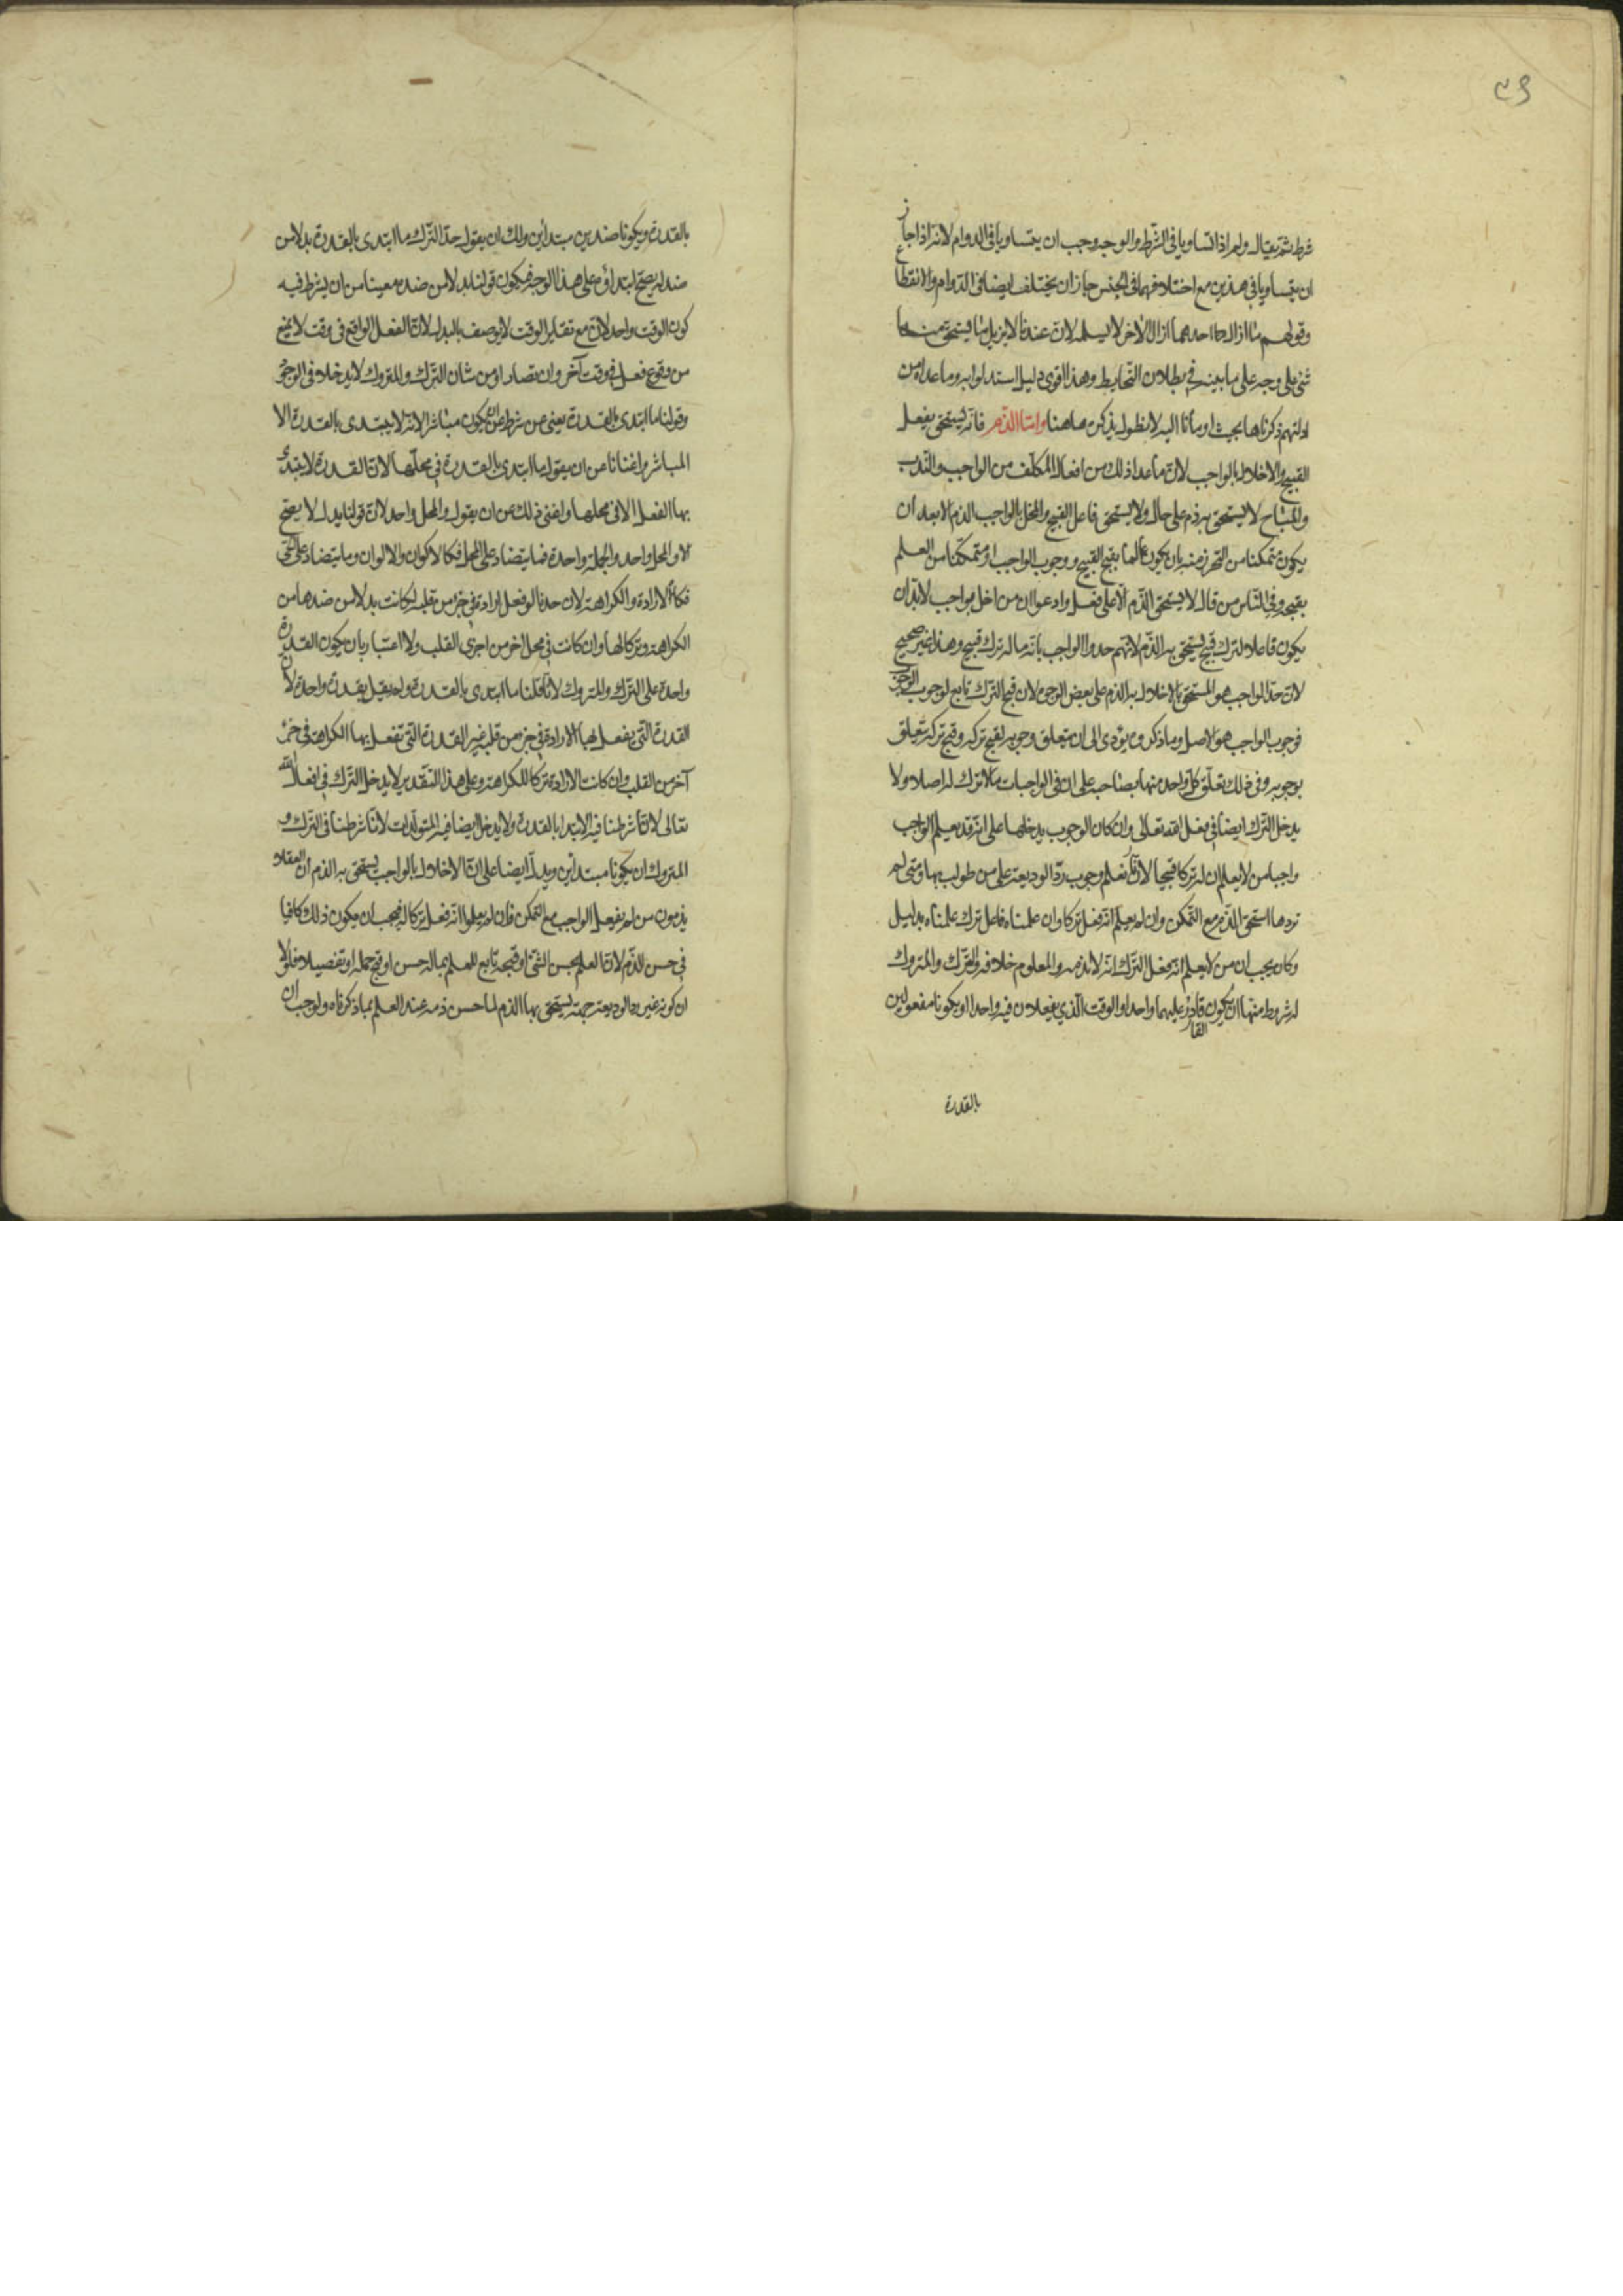 ٤٩
شرط ثم يقال ولم اذا تساويا في الشرط والوجه وجب ان يتساويا في الدوام لانه اذا جاز
ان يتساويا في هذين مع اختلافهما في الجنس جاز ان يختلف ايضا في الدوام والانقطاع
وقولهم ما ازال احدهما ازال الاخر لا يسلم لان عندنا لا يزيل ما يستحق منهما
شئ على وجه على ما بينه في بطلان التحابط وهذا اقوى دليل استدلوا به وما عداه من
ادلتهم ذكرناها بحيث اومأنا اليه لا نطول بذكره هاهنا واما الذم فانه يستحق بفعل
القبيح والاخلال بالواجب لان ما عدا ذلك من افعال المكلف من الواجب والندب
والمباح لا يستحق به ذم على حال ولا يستحق فاعل القبيح والمخل بالواجب الذم الا بعد ان
يكون متمكنا من التحرز منه بان يكون عالما بقبح القبيح ووجوب الواجب او متمكنا من العلم
بقبحه وفي الناس من قال لا يستحق الذم الا على فعل وادعوا ان من اخل بواجب لا بد ان
يكون فاعلا لترك قبيح يستحق به الذم لانهم حدوا الواجب بانه ما له ترك قبيح وهذا غير صحيح
لان حد الواجب هو المستحق بالاخلال به الذم على بعض الوجوه لان قبح الترك تابع لوجوب
فوجوب الواجب هو الاصل وما ذكروه يؤدى الى ان يتعلق وجوبه لقبح تركه وقبح تركه يتعلق
بوجوبه وفى ذلك تعلق كل واحد منهما بصاحبه على ان في الواجبات ما لا ترك له اصلا ولا
يدخل الترك ايضا في فعل الله تعالى وان كان الوجوب يدخلها على انه قد يعلم الواجب
واجبا من لا يعلم ان له تركا قبيحا لانا نعلم وجوب رد الوديعة على من طولب بها ومتى لم
يردها استحق الذم مع التمكن وان لم يعلم انه فعل تركا وان علمناه فاعل ترك علمناه بدليل
وكان يجب ان من لا يعلم انه فعل الترك انه لا يذمه والمعلوم خلافه والترك والمتروك
له شروط منها ان يكون القادر عليهما واحدا والوقت الذي يفعلان فيه واحدا او يكونا مفعولين
بالقدرة
بالقدرة ويكونا ضدين مبتدأين ولك ان يقول حد الترك ما ابتدى بالقدرة بدلا من
ضد له يصح ابتداؤه على هذا الوجه فيكون قولنا بدلا من ضد مغنيا من ان يشرط فيه
كون الوقت واحد لان مع تغاير الوقت لا يوصف بالبدل لان الفعل الواقع في وقت لا يمنع
من وقوع فعل في وقت آخر وان تضادا ومن شان الترك والمتروك لا يدخلا في الوجود
وقولنا ما ابتدى بالقدرة يغنى عن شرط ان يكون مباشرا لانه لا يبتدى بالقدرة الا
المباشر واغنانا عن ان يقول ما ابتدى بالقدرة في محلها لان القدرة لا يبتدئ
بها الفعل الا في محلها واغنى ذلك عن ان يقول والمحل واحد لان قولنا بدل لا يصح
الا والمحل واحد والجملة واحدة فما يتضاد على المحل فكالاكوان والالوان وما يتضاد على الحى
فكالارادة والكراهة لان احدنا لو فعل ارادة في جزء من قلبه لكانت بدلا من ضدها من
الكراهة وتركا لها وان كانت في محل اخر من اجزاء القلب ولا اعتبار بان يكون القدرة
واحدة على الترك والمتروك لانا قلنا ما ابتدى بالقدرة ولم يقل بقدرة واحدة لان
القدرة التي يفعل بها الارادة في جزء من قلب غير القدرة التي تفعل بها الكراهة في جزء
آخر من القلب وان كانت الارادة تركا للكراهة وعلى هذا التقدير لا يدخل الترك في افعال الله
تعالى لانا شرطنا فيه الابتداء بالقدرة ولا يدخل ايضا فيه المتولدات لانا شرطنا في الترك و
المتروك ان يكونا مبتدأين ويدل ايضا على ان الاخلال بالواجب يستحق به الذم ان العقلاء
يذمون من لم يفعل الواجب مع التمكن فان لم يعلموا انه فعل تركا له فيجب ان يكون ذلك كافيا
في حسن الذم لان العلم بحسن الشئ او قبحه تابع للعلم بما له حسن او قبح جملة او تفصيلا فلولا
ان كونه غير راد الوديعة جهة يستحق بها الذم لما حسن ذمه عند العلم بما ذكرناه ولوجب ان